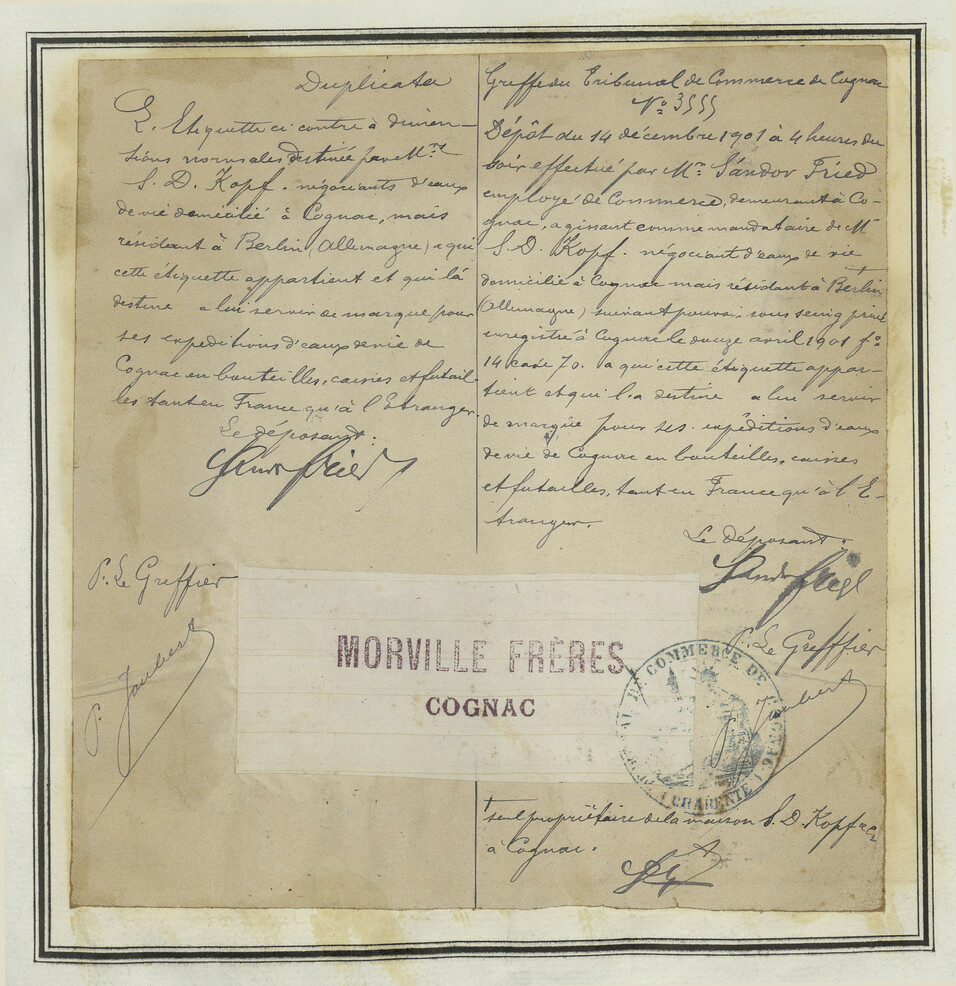 Duplicata
L'Etiquette ci contre à dimen-
tions normales destinée par Mrs
S. D. Kopf. négociants d'eaux
de vie domicilié à Cognac, mais
résidant à Berlin (Allemagne) a qui
cette étiquette appartient et qui l'a
destine a lui servir de marque pour
ses expeditions d'eaux de vie de
Cognac en bouteilles, caisses et futail-
les tant en France qu'à l'Etranger.
Le déposant:
Sandor Fried
P. Le Greffier
P. Joubert
Greffe du Tribunal de Commerce de Cognac
No 3555
Dépôt du 14 décembre 1901 à 4 heures du
soir effectué par Mr Sándor Fried
employé de Commerce, demeurant à Co-
gnac, agissant comme mandataire de Mr
S. D. Kopf. négociant d'eaux de vie
domicilié à Cognac mais résidant à Berlin
(Allemagne) suivant pouvoir sous seing privé
enregistré à Cognac le douze avril 1901 fo
14 case 70. a qui cette étiquette appar-
tient et qui l'a destine a lui servir
de marque pour ses expéditions d'eaux
de vie de Cognac en bouteilles, caisses
et futailles, tant en France qu'à l'E-
tranger.
Le déposant:
Sandor Fried
P. Le Greffier
P. Joubert
MORVILLE FRÈRES
COGNAC
TRIBUNAL DE COMMERCE DE COGNAC
(CHARENTE)
+ seul propriétaire de la maison S. D. Kopf & Ce
à Cognac.